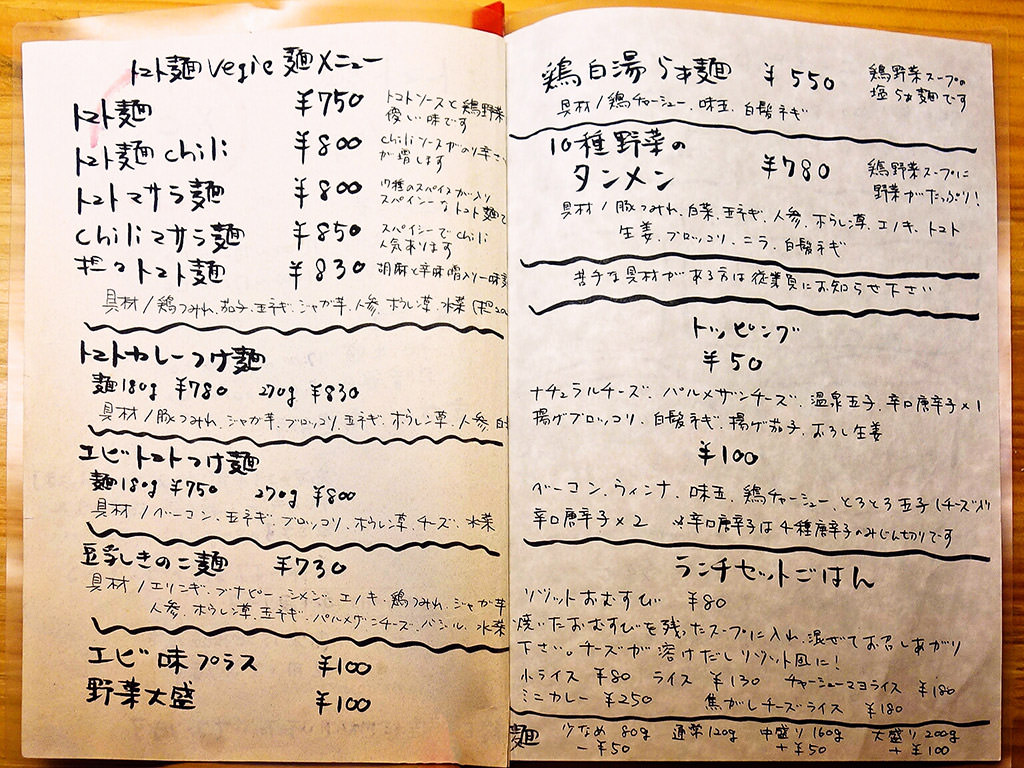 トマト麺 vegie 麺メニュー
トマト麺 ¥750 トマトソースと鶏野菜
優しい味です
トマト麺 chili ¥800 chiliソースがのり辛さ
が増します
トマトマサラ麺 ¥800 17種のスパイスが入り
スパイシーなトマト麺で
chiliマサラ麺 ¥850 スパイシーでchili
人気あります
担々トマト麺 ¥830 胡麻と辛味噌入り一味
具材/鶏つみれ、茄子、玉ネギ、ジャガ芋、人参、ホウレン草、水菜
トマトカレーつけ麺
麺180g ¥780 270g ¥830
具材/豚つみれ、ジャガ芋、ブロッコリ、玉ネギ、ホウレン草、人参、白
エビトマトつけ麺
麺180g ¥750 270g ¥800
具材/ベーコン、玉ネギ、ブロッコリ、ホウレン草、チーズ、水菜
豆乳しきのこ麺 ¥730
具材/エリンギ、ブナピー、シメジ、エノキ、鶏つみれ、ジャガ芋
人参、ホウレン草、玉ネギ、パルメザンチーズ、バジル、水菜
エビ味プラス ¥100
野菜大盛 ¥100
鶏白湯らぁ麺 ¥550 鶏野菜スープの
塩らぁ麺です
具材/鶏チャーシュー、味玉、白髪ネギ
10種野菜の
タンメン ¥780 鶏野菜スープに
野菜がたっぷり!
具材/豚つみれ、白菜、玉ネギ、人参、ホウレン草、エノキ、トマト
生姜、ブロッコリ、ニラ、白髪ネギ
苦手な具材がある方は従業員にお知らせ下さい
トッピング
¥50
ナチュラルチーズ、パルメザンチーズ、温泉玉子、辛口唐辛子×1
揚げブロッコリ、白髪ネギ、揚げ茄子、おろし生姜
¥100
ベーコン、ウィンナ、味玉、鶏チャーシュー、とろとろ玉子(チーズ入)
辛口唐辛子×2 ※辛口唐辛子は4種唐辛子のみじん切りです
ランチセットごはん
リゾットおむすび ¥80
焼いたおむすびを残ったスープに入れ、混ぜてお召しあがり
下さい。チーズが溶けだしリゾット風に!
小ライス ¥80 ライス ¥130 チャーシューマヨライス ¥180
ミニカレー ¥250 焦がしチーズライス ¥180
麺 少なめ 80g 通常120g 中盛り160g 大盛り200g
-¥50 +¥50 +¥100